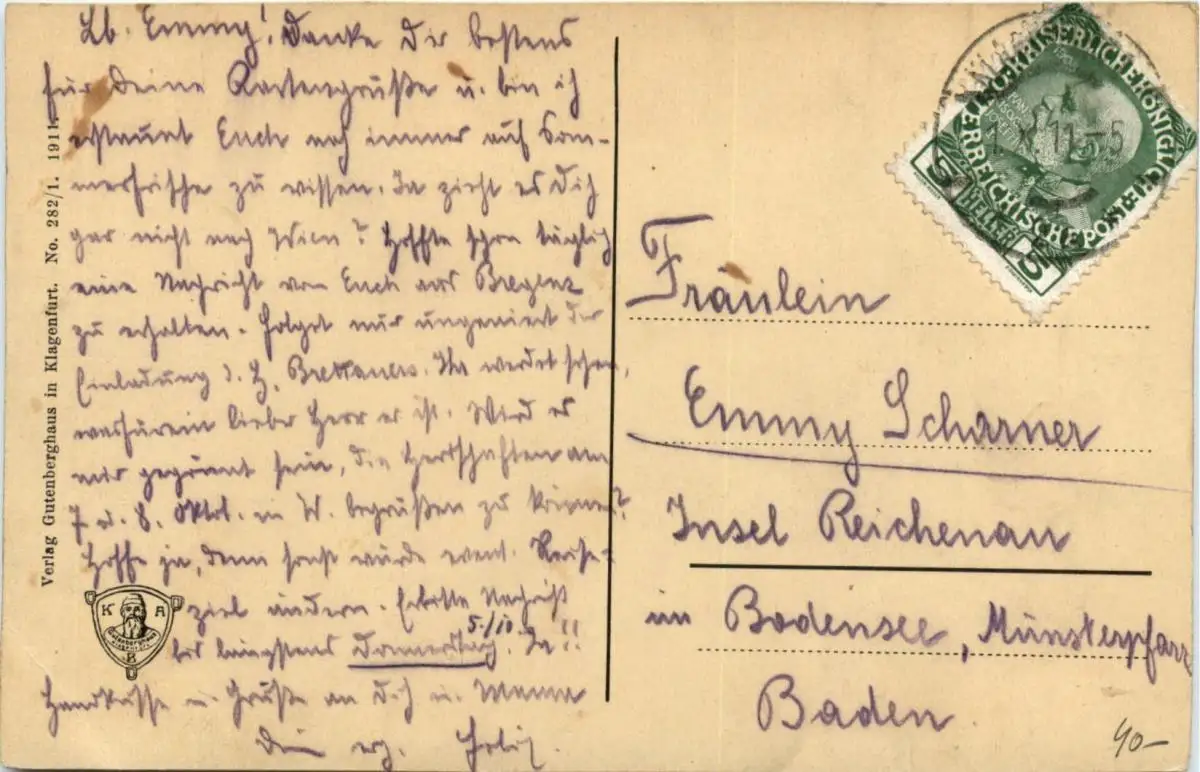 Lb. Emmy! Danke Dir bestens
für Deine Kartengrüße u. bin ich
erstaunt Euch noch immer auf Som-
merfrische zu wissen. Ja zieht es Dich
gar nicht nach Wien? Hoffte schon täglich
eine Nachricht von Euch aus Bregenz
zu erhalten. Folget nur ungeniert der
Einladung d. H. Ihr werdet sehen,
was für ein lieber Herr er ist. Wird es
mir gegönnt sein, die Herrschaften am
7. od. 8. Oktob. in W. begrüßen zu können?
Hoffe ja, denn sonst würde event. Reise-
ziel ändern. Erbitte Nachricht
bis längstens Donnerstag 5./10. Ja!!
Handküsse u. Grüße an Dich u. Mama
Dein erg.
Verlag Gutenberghaus in Klagenfurt. No. 282/1. 1911.
K A
Gutenberghaus
Klagenfurt
B
KAISERLICHE KÖNIGLICHE
ÖSTERREICHISCHE POST
5 HELLER 5
1 X 11-5
Fräulein
Emmy Scharner
Insel Reichenau
im Bodensee, Münsterpfarr
Baden.
40–